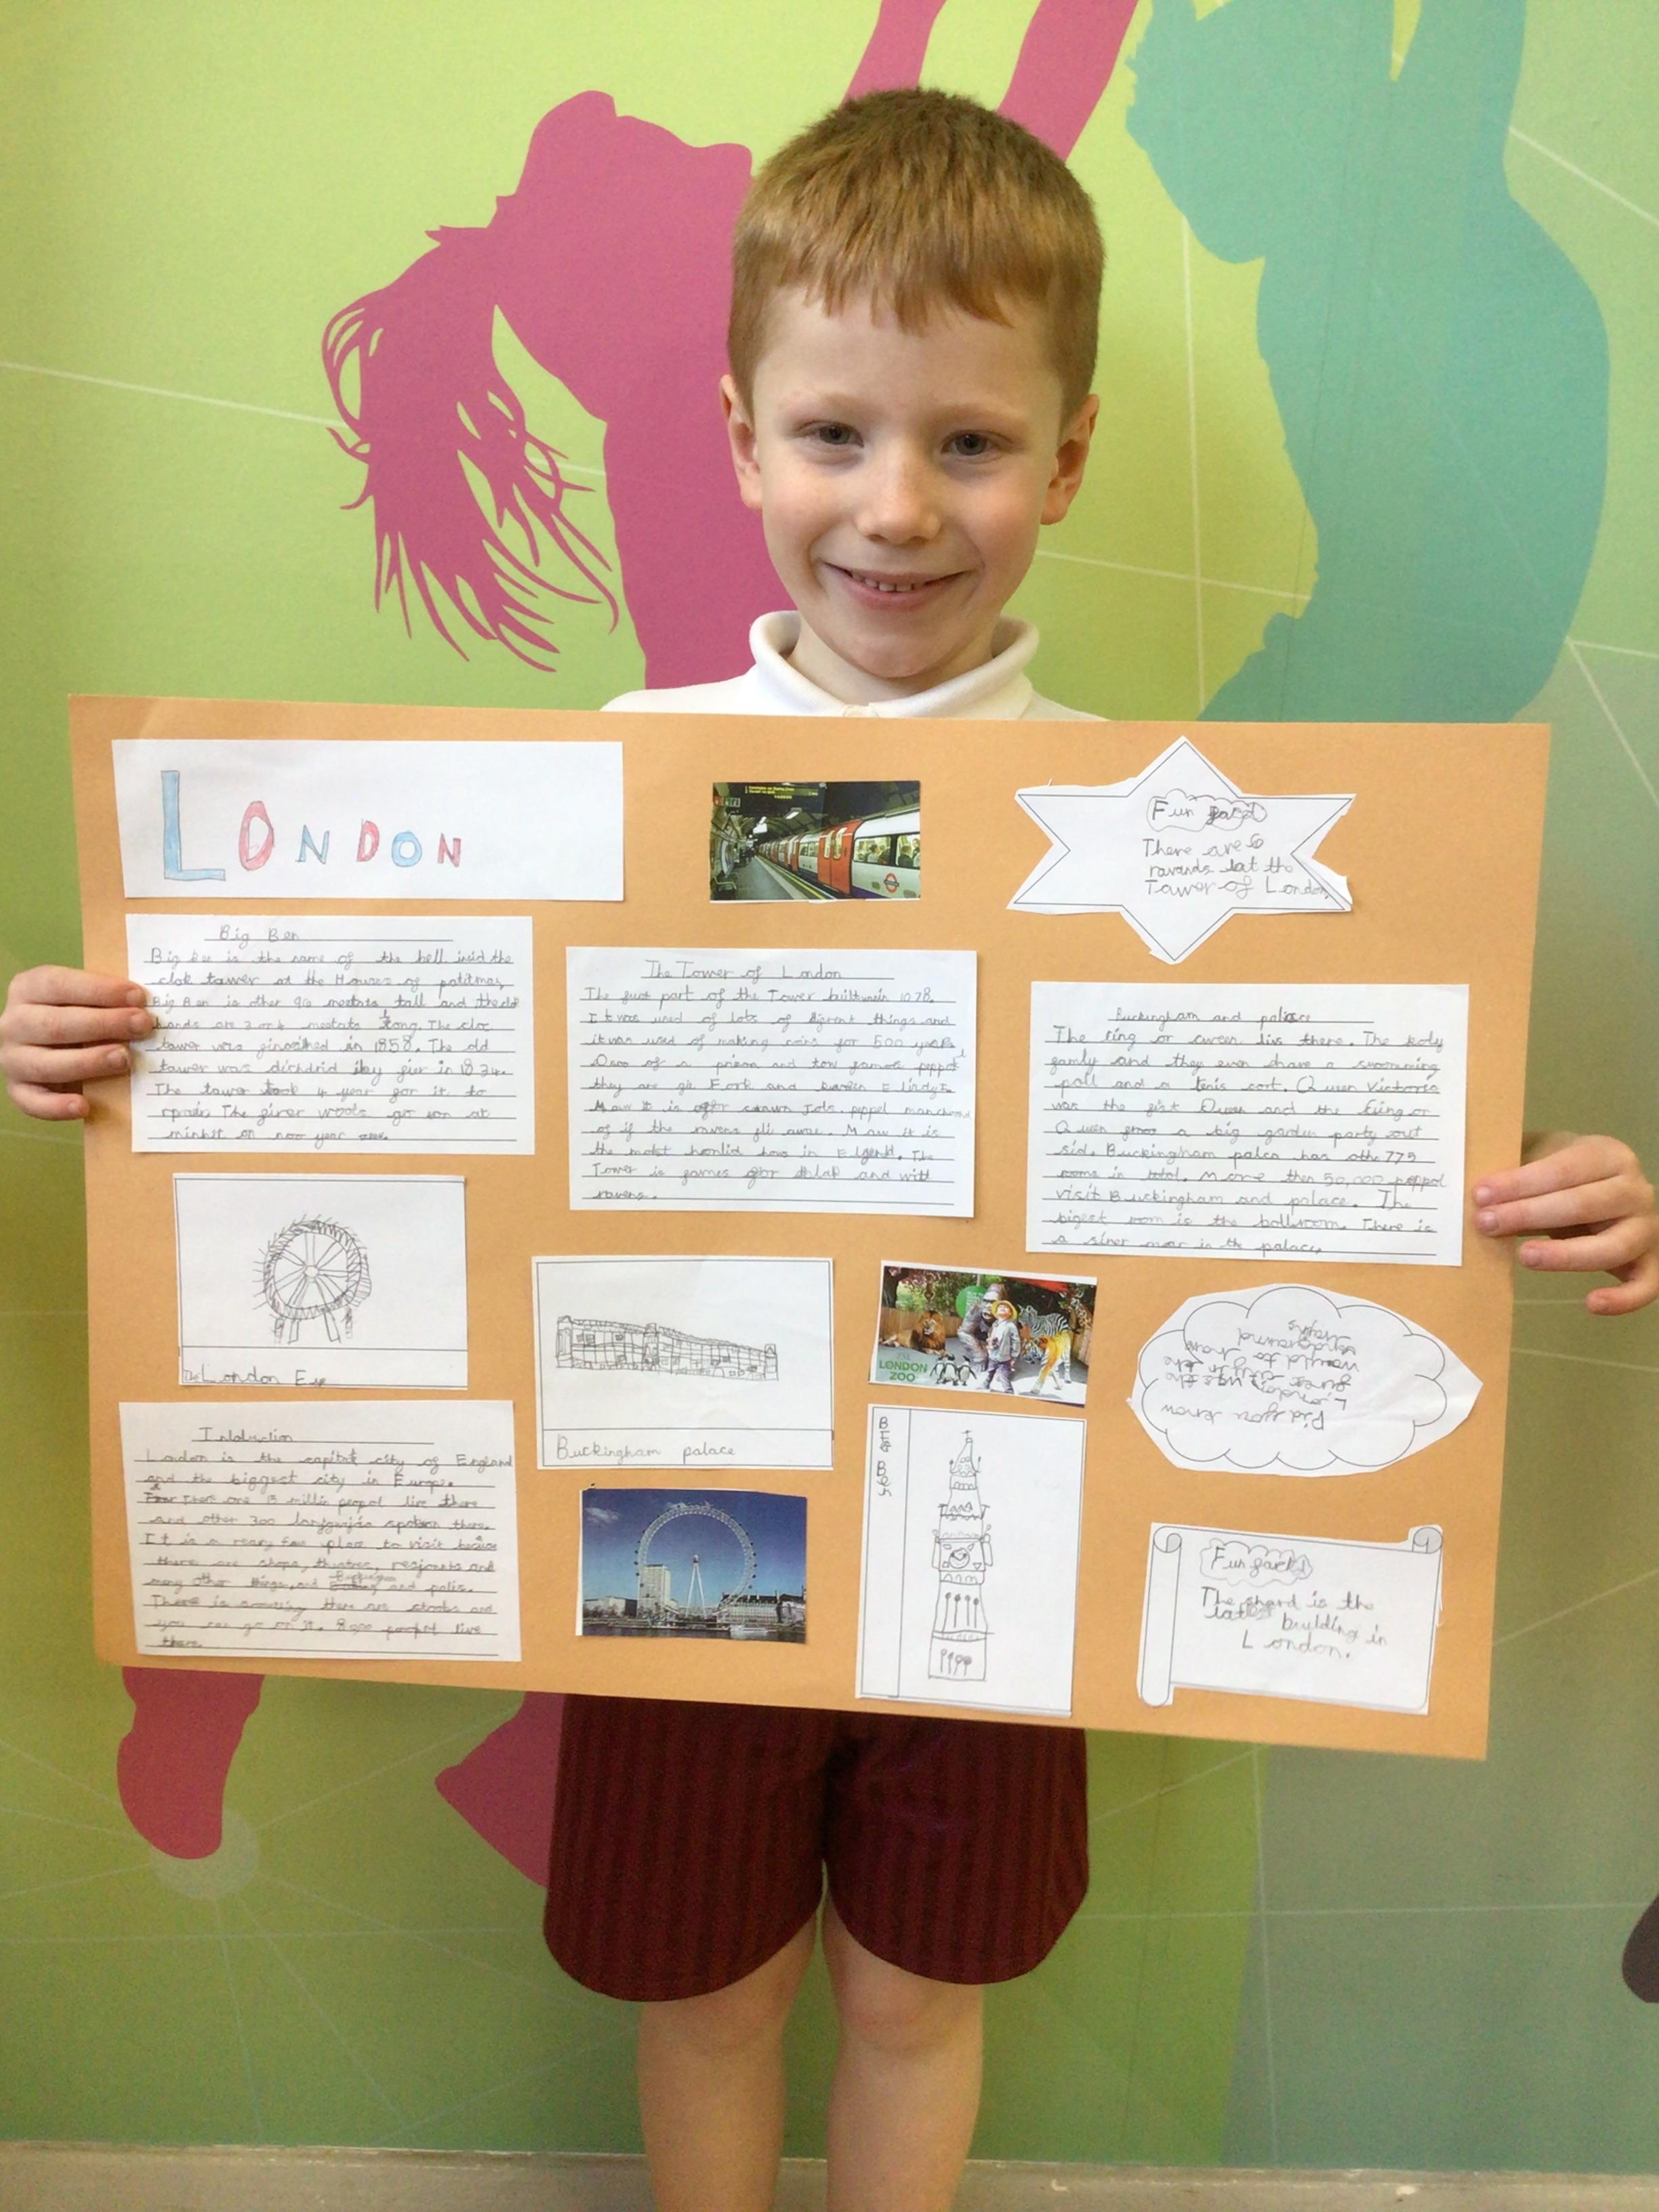 LONDON
Fun fact!
There are 6
ravands lat the
Tower of London,
Big Ben
Big Ben is the name of the bell insid the
clok tawer at the Houses of politmas,
Big Ben is other 90 meatats tall and the clok
hands are 2 or 4 meatats long. The cloc
tawer was ginocshed in 1858. The old
tawer was dichdrid by gier in 1834.
The tawer took 4 year for it to
rpair. The girer woods go son at
minhit on noo year
The Tower of London
The part of the Tower built 1078.
It was used of lots of digrent things and
it was used of making coins for 500 years.
Oso of a prison and tow games peppol
they are gie Fork and E
Maw it is Jols. peppel
of if the ravens fli away. Maw it is
the most horlid hows in Elgend. The
Tower is games gor and witt
ravens.
Buckingham and palisce
The king or cween livs there. The holy
gamly and they even have a swomming
poll and a tenis cort. Queen Victoria
was the gist Queen and the king or
Queen a big garden party out
sid. Buckingham palca has oth 775
rooms in total. More then 50,000 peppol
visit Buckingham and palace. The
bigest room is the ballroom. There is
a siner moor in the palace,
The London Eye
Buckingham palace
LONDON
ZOO
Big Ben
Did you know
London was the
gurst city in the
would to have
undground
trayns
Intoduction
London is the capitol city of England
and the biggest city in Europe.
There are 13 millin peopol live there
and other 300 spoken there.
It is a reary fun place to visit because
there are shops, theatres, resjonts and
meny other things, and Buckingham and palis.
There is there are and
you can go on it. 8,000 peopol live
there.
Fun fact!
The shard is the
building in
London.